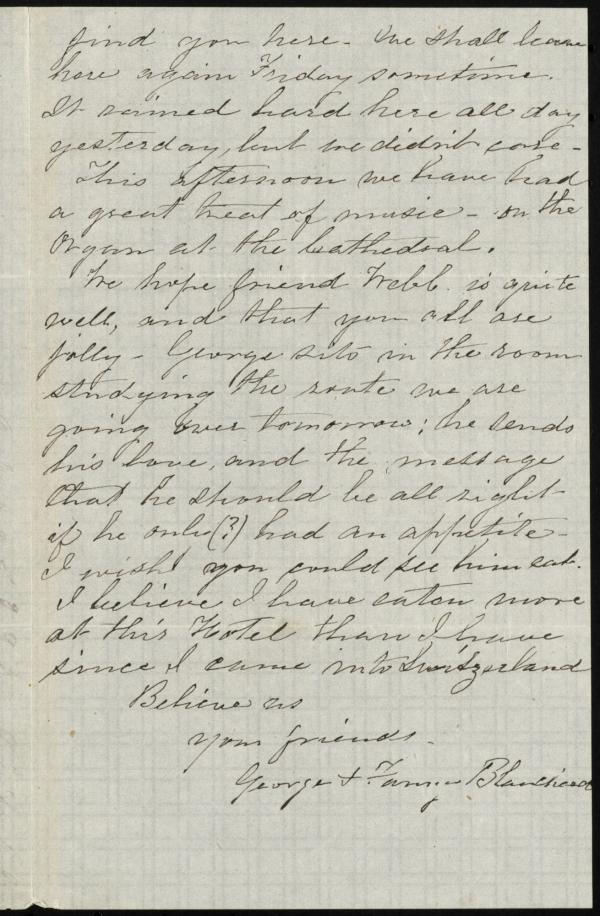 find you here - We shall leave
here again Friday sometime.
It rained hard here all day
yesterday, but we didn't care -
This afternoon we have had
a great treat of music - on the
Organ at the Cathedral.
We hope friend Webb. is quite
well, and that you all are
jolly - George sits in the room
studying the route we are
going over tomorrow; he sends
his love, and the message
that he should be all right
if he only (?) had an appetite -
I wish you could see him eat.
I believe I have eaten more
at this Hotel than I have
since I came into Switzerland
Believe us
your friends.
George & Fannie Blanchard